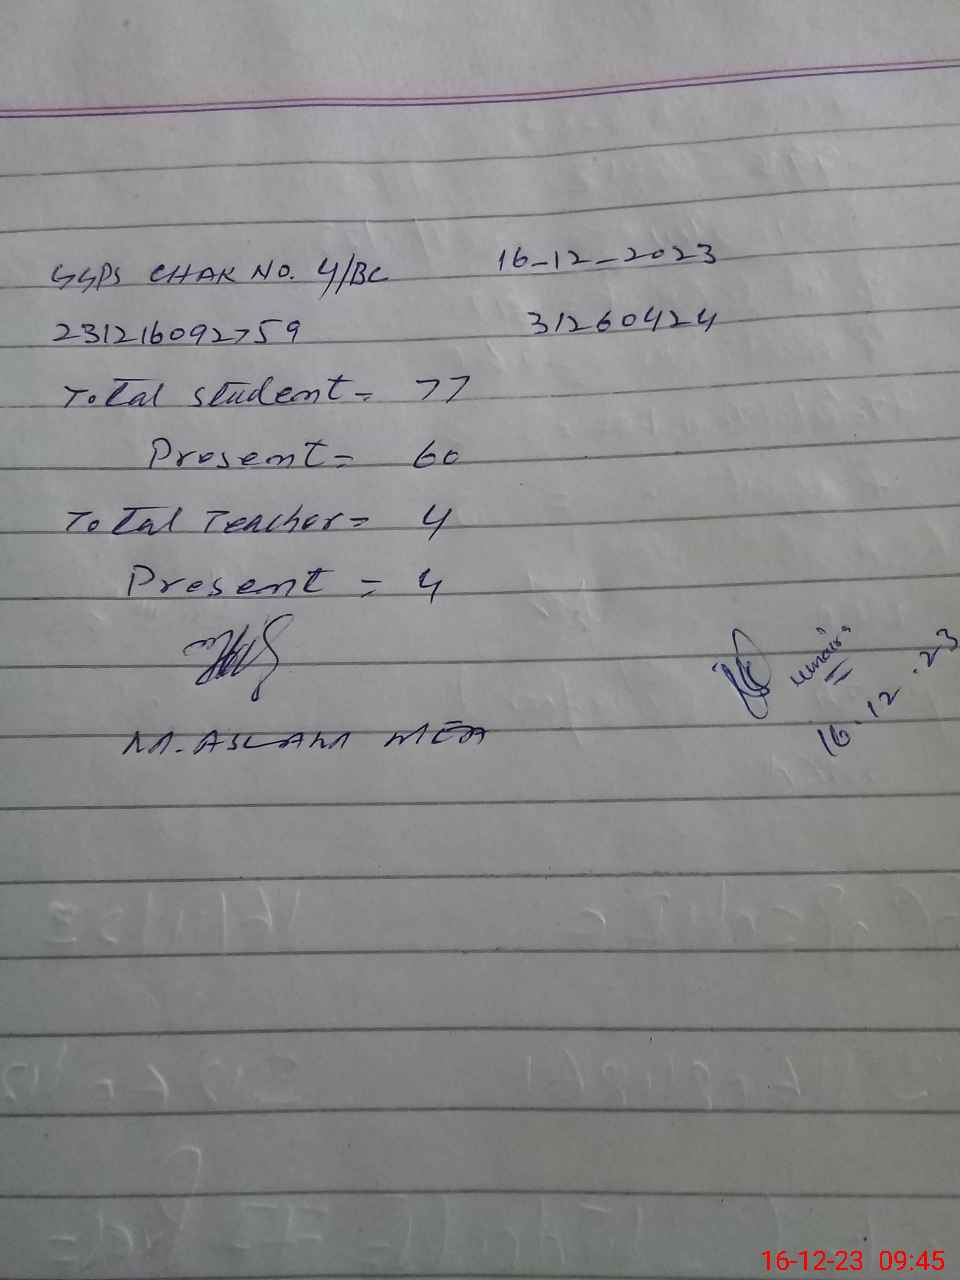 GGPS CHAK NO. 4/BC 16-12-2023
231216092759 31260424
Total student = 77
Present = 60
Total Teacher = 4
Present = 4
M. ASLAM MEA
16.12.23
16-12-23 09:45